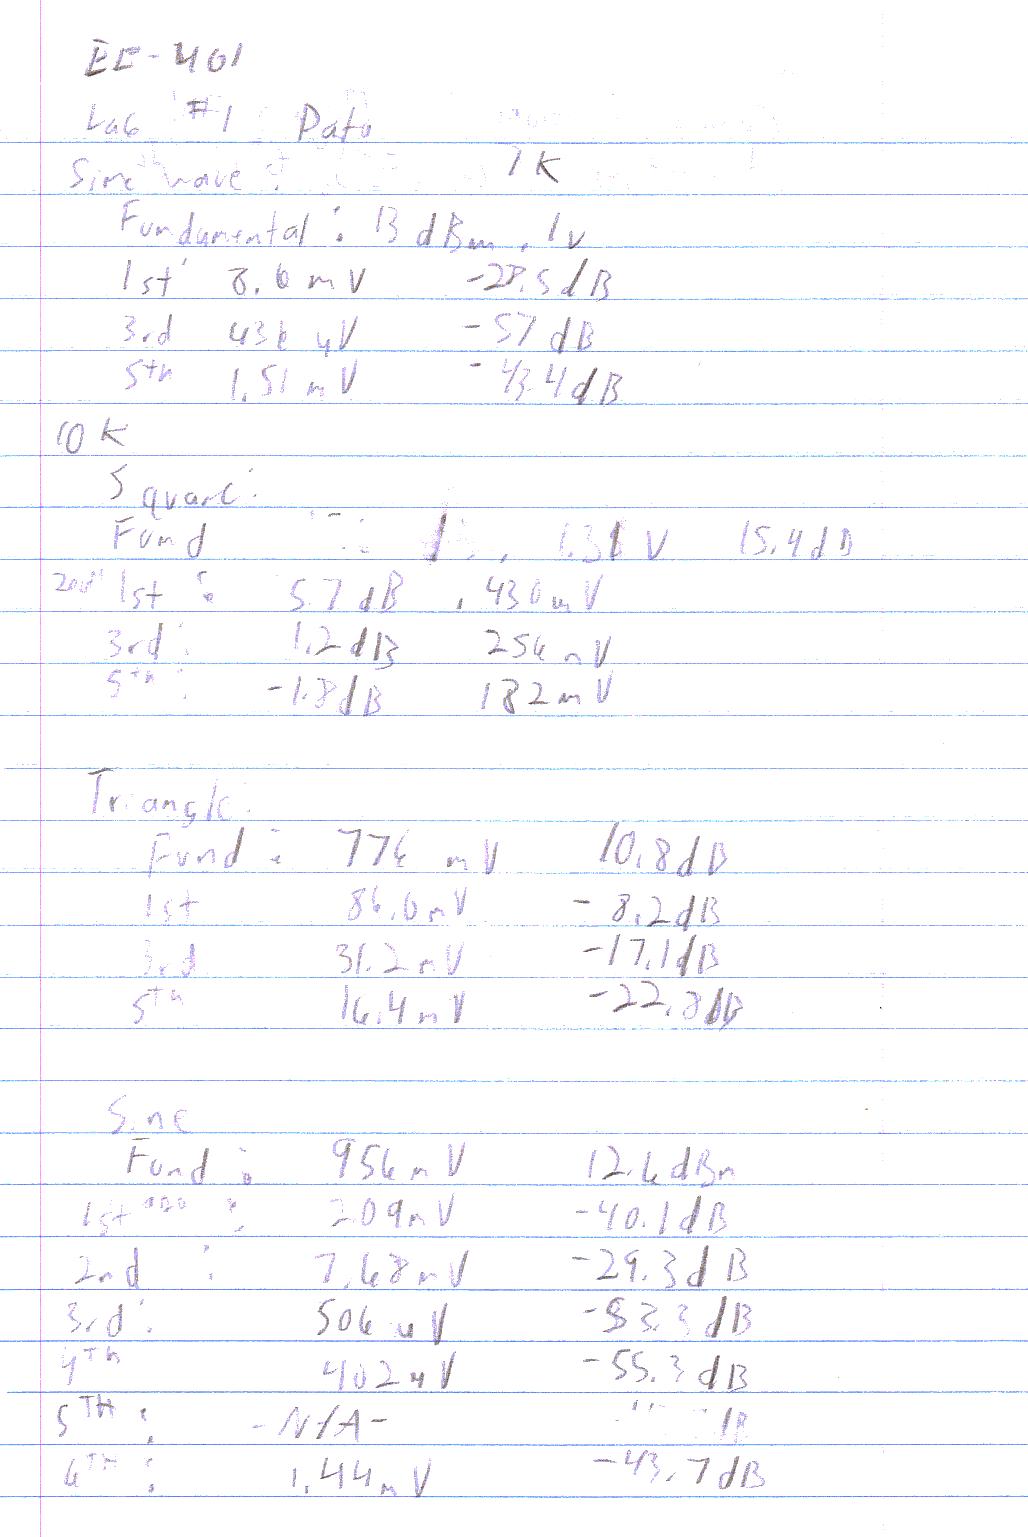 EE-401
Lab #1 Data
Sine wave: 1K
Fundamental: 13 dBm, 1v
1st 8.6 mV -28.5dB
3rd 436 uV -57 dB
5th 1.51 mV -43.4dB
10 K
Square:
Fund V 15.4dB
1st: 5.7 dB, 430mV
3rd: 1.2dB 256mV
5th: -1.8dB 182mV
Triangle:
Fund: 776 mV 10.8dB
1st 86.6mV -8.2dB
3rd 31.2mV -17.1dB
5th 16.4mV -22.8dB
Sine
Fund: 956mV 12.6dBm
1st odd: 2.09mV -40.1dB
2nd: 7.68mV -29.3dB
3rd: 506uV -53.3dB
4th 402uV -55.3dB
5TH: -N/A- dB
6TH: 1.44mV -43.7dB